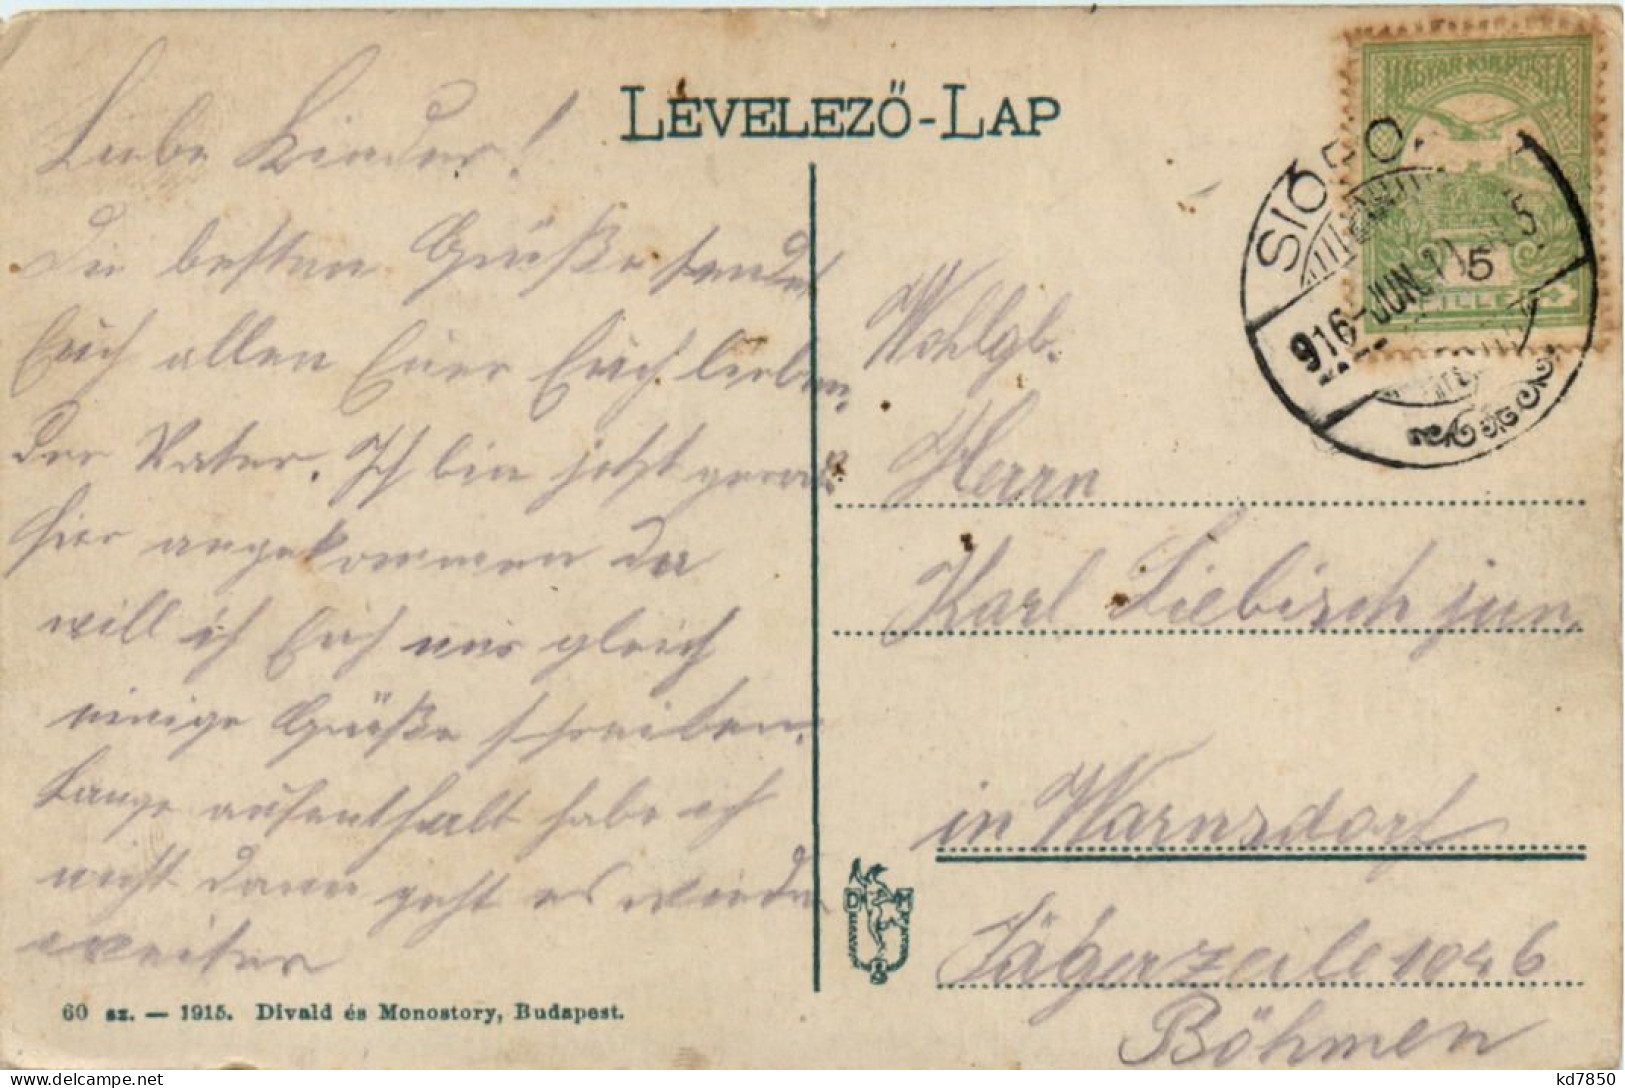 LEVELEZŐ-LAP
Liebe Kinder!
Die besten Grüße sendet
Euch allen Euer Euch lieben-
der Vater. Ich bin jetzt gerade
hier angekommen da
will ich Euch nur gleich
einige Grüße schreiben.
Lange aufenthalt habe ich
nicht dann geht es wieder
weiter
60 sz. — 1915. Divald és Monostory, Budapest.
MAGYAR KIR. POSTA
5
FILLÉR
SIÓFO
916 JUN.
5
Wohlgb.
Herrn
Karl Liebisch jun.
in Warnsdorf
Jägerzeile 1046
Böhmen
D M
kd7850